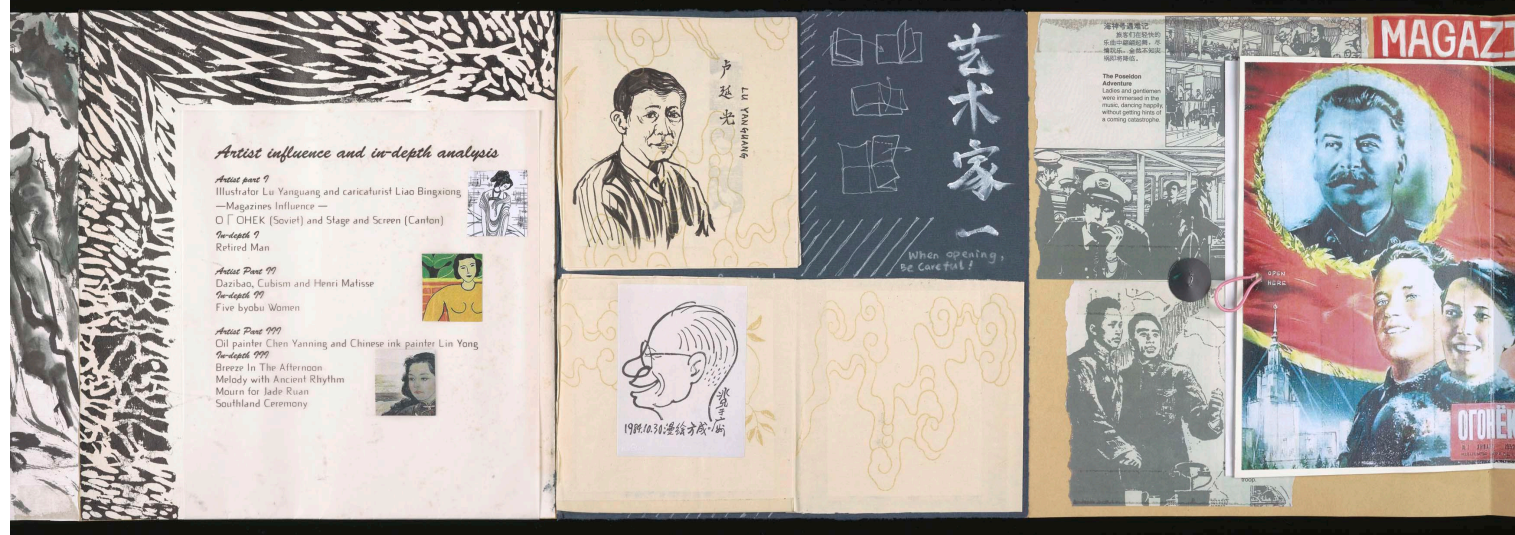 Artist influence and in-depth analysis
Artist part I
Illustrator Lu Yanguang and caricaturist Liao Bingxiong
—Magazines Influence —
О Г ОНЕК (Soviet) and Stage and Screen (Canton)
In-depth I
Retired Man
Artist Part II
Dazibao, Cubism and Henri Matisse
In-depth II
Five byobu Women
Artist Part III
Oil painter Chen Yanning and Chinese ink painter Lin Yong
In-depth III
Breeze In The Afternoon
Melody with Ancient Rhythm
Mourn for Jade Ruan
Southland Ceremony
卢延光
LU YANGUANG
艺术家一
When opening,
Be Careful!
1984.10.30漫绘方成
旅客们在轻快的
乐曲中翩翩起舞，尽
The Poseidon
Adventure
Ladies and gentlemen
were immersed in the
music, dancing happily,
without getting hints of
a coming catastrophe.
MAGAZI
OPEN
HERE
ОГОНЁК
troop.